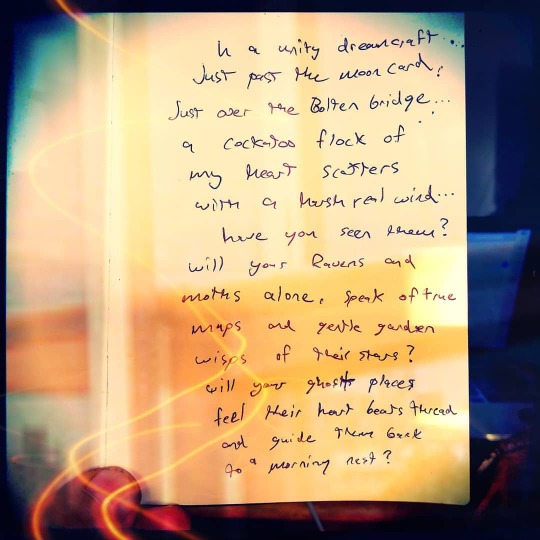 In a unity dreamcraft...
Just past the moon card,
Just over the Bolten bridge...
a cockatoo flock of
my heart scatters
with a harsh real wind...
have you seen them?
will your Ravens and
moths alone, speak of true
maps and gentle garden
wisps of their stars?
will your ghosts places
feel their heart beats thread
and guide them back
to a morning nest?